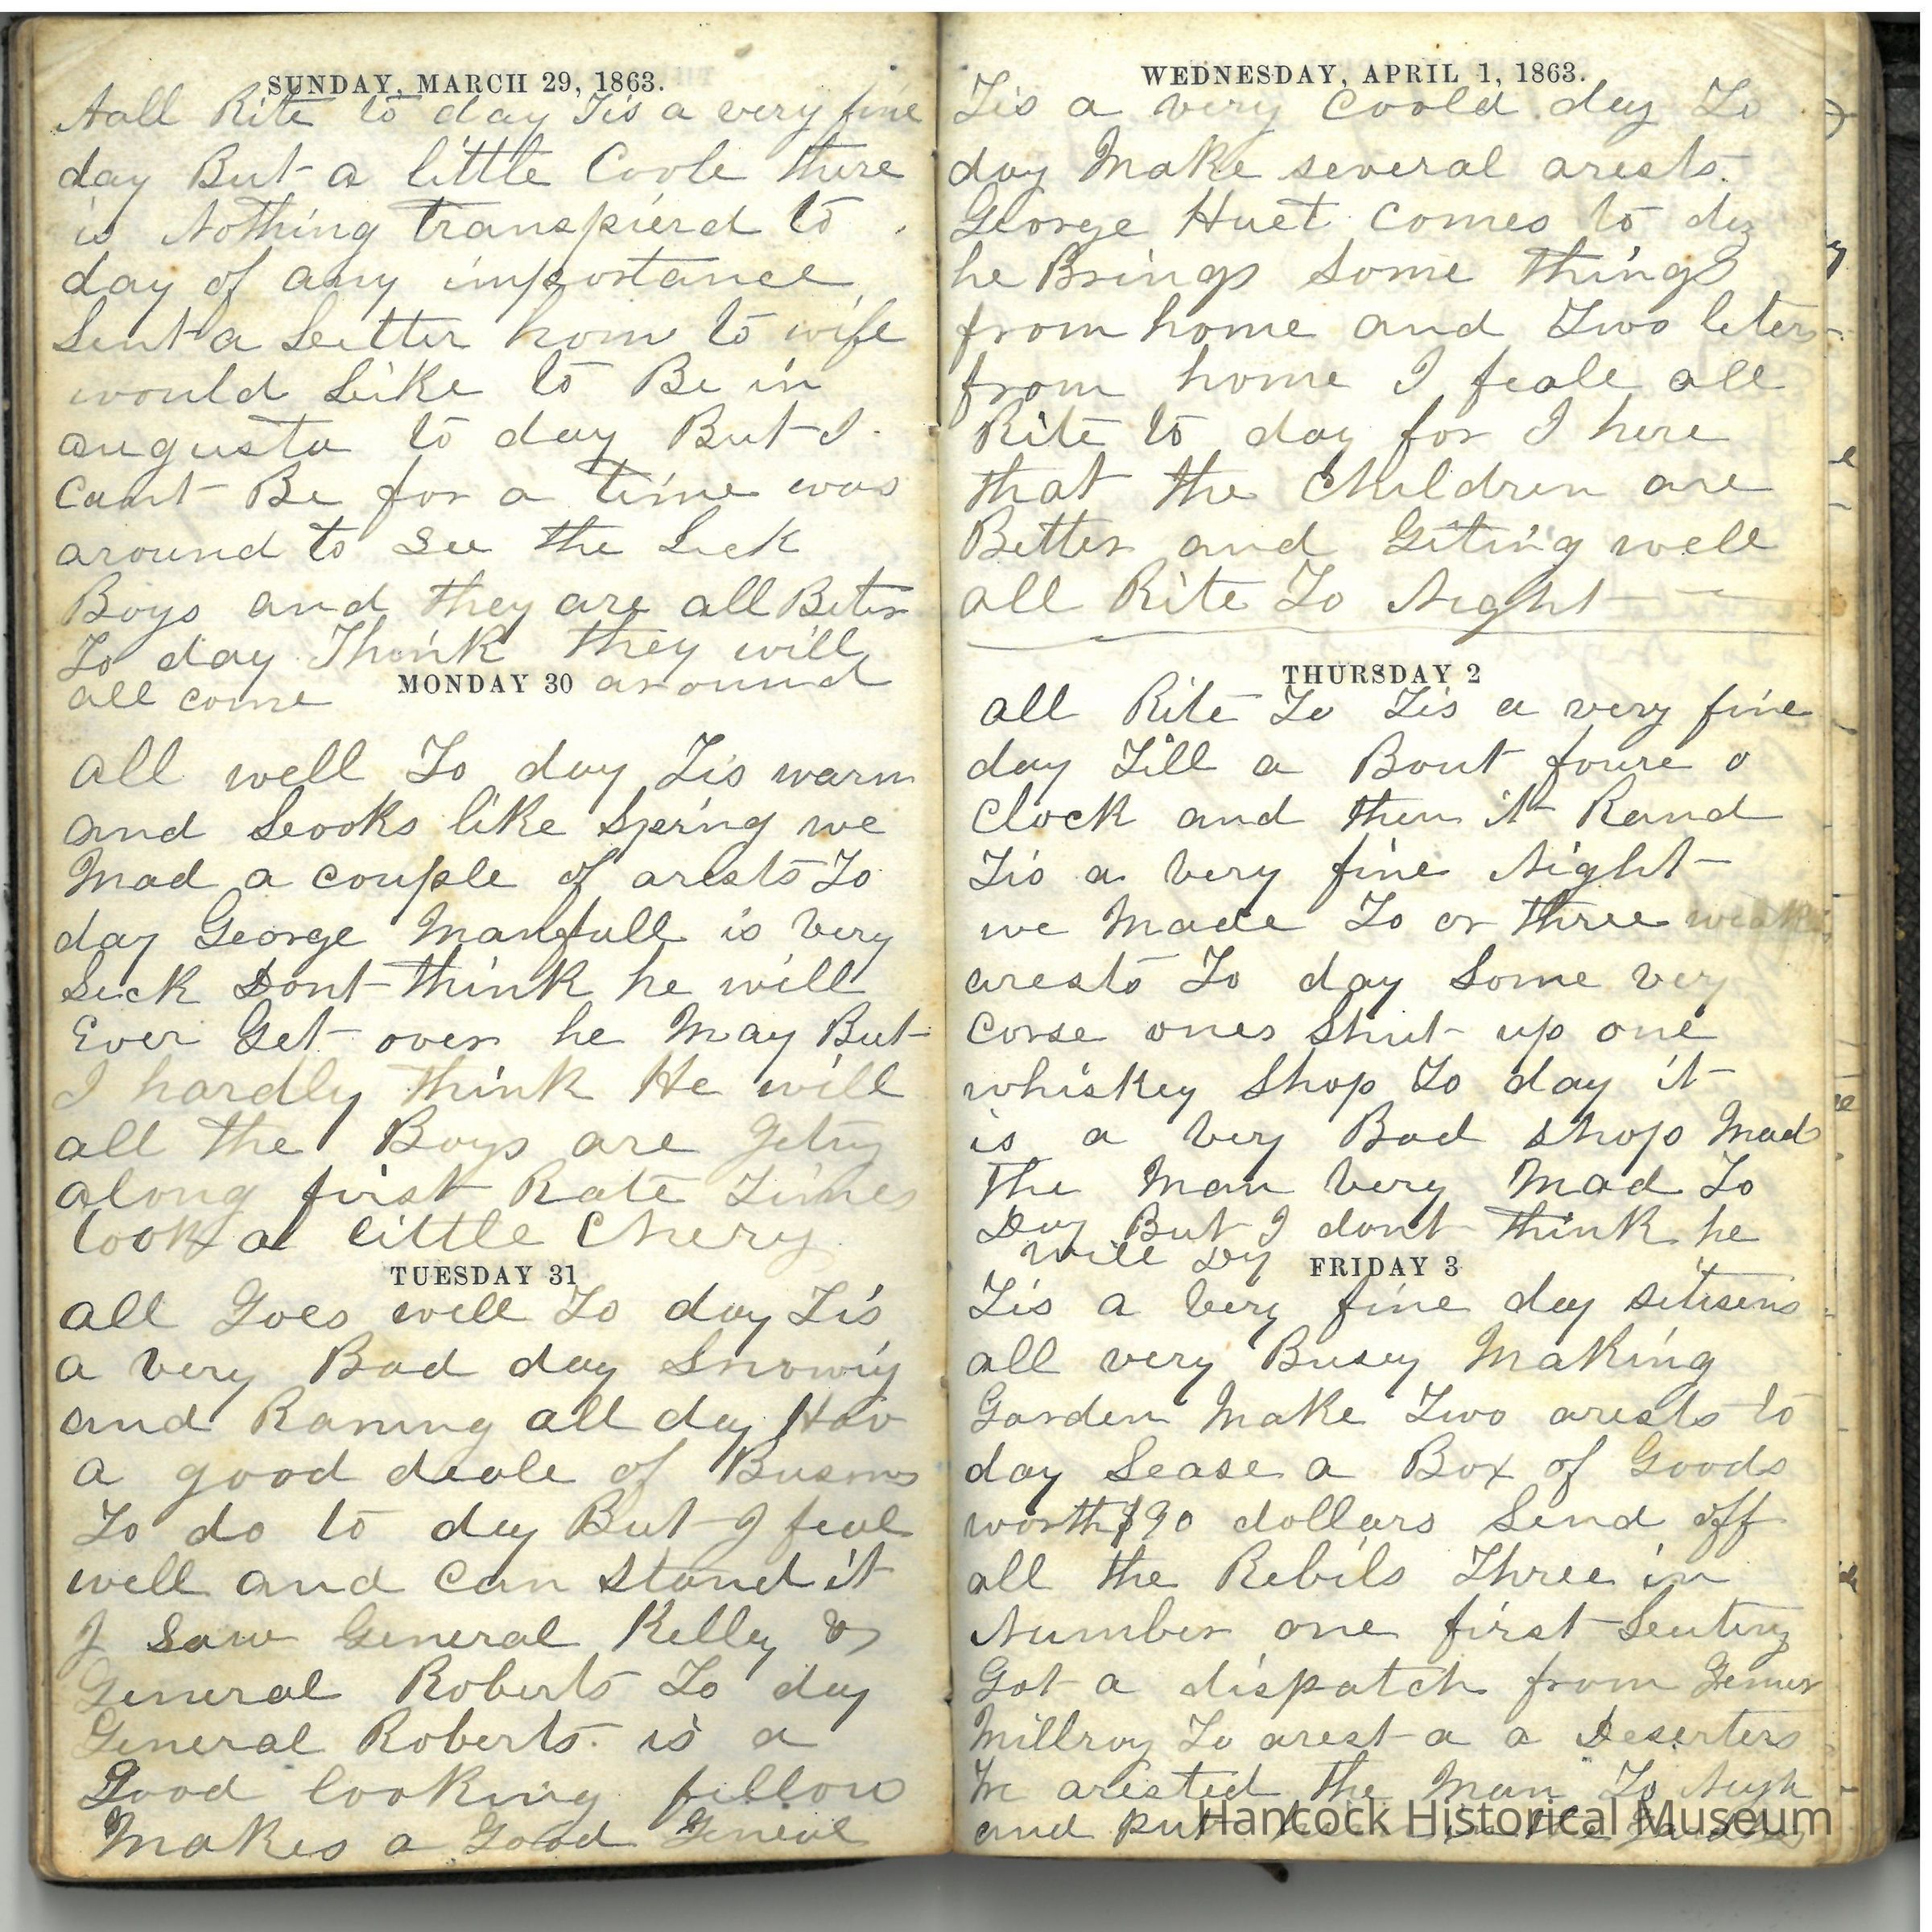 SUNDAY, MARCH 29, 1863.
Aall Rite to day Tis a very fine
day But a little Coole there
is Nothing transpierd to
day of any importance
Sent a Leitter hom to wife
would Like to Be in
augusta to day But I
Cant Be for a time was
around to see the Sick
Boys and they are all Beter
To day Think they will
all come around
MONDAY 30
all well To day Tis warm
and Loooks like Spring we
Mad a couple of arests To
day George Manfull is very
Sick Dont think he will
Ever Get over he May But
I hardly think He will
all the Boys are Geting
along first Rate Times
look a little Chery
TUESDAY 31
all Goes well To day Tis
a very Bad day Snowing
and Raning all day Hav
a good deale of Busnes
To do to day But I feal
well and Can Stand it
I Saw General Kelley &
General Roberts To day
General Roberts is a
Good looking fellow
Makes a Good General
WEDNESDAY, APRIL 1, 1863.
Tis a very Coold day To
day Make several arests.
George Huet Comes to day
he Brings Some things
from home and Two leters
from home I feale all
Rite to day for I here
that the Children are
Better and Giting well
all Rite To Night
THURSDAY 2
all Rite To Tis a very fine
day Till a Bout foure o
Clock and then it Rand
Tis a very fine Night
we Made To or three
arests To day Some very
Corse ones Shut up one
whiskey Shop To day it
is a very Bad shop Mad
the Man very Mad To
Day But I dont think he
will Dy
FRIDAY 3
Tis a very fine day sitisens
all very Busey Making
Garden Make Two arests to
day Sease a Box of Goods
worth $90 dollars Send off
all the Rebils Three in
Number one first
Got a dispatch from
Millroy To arest a a Deserters
We arested the Man To Nigh
and put in the
Hancock Historical Museum